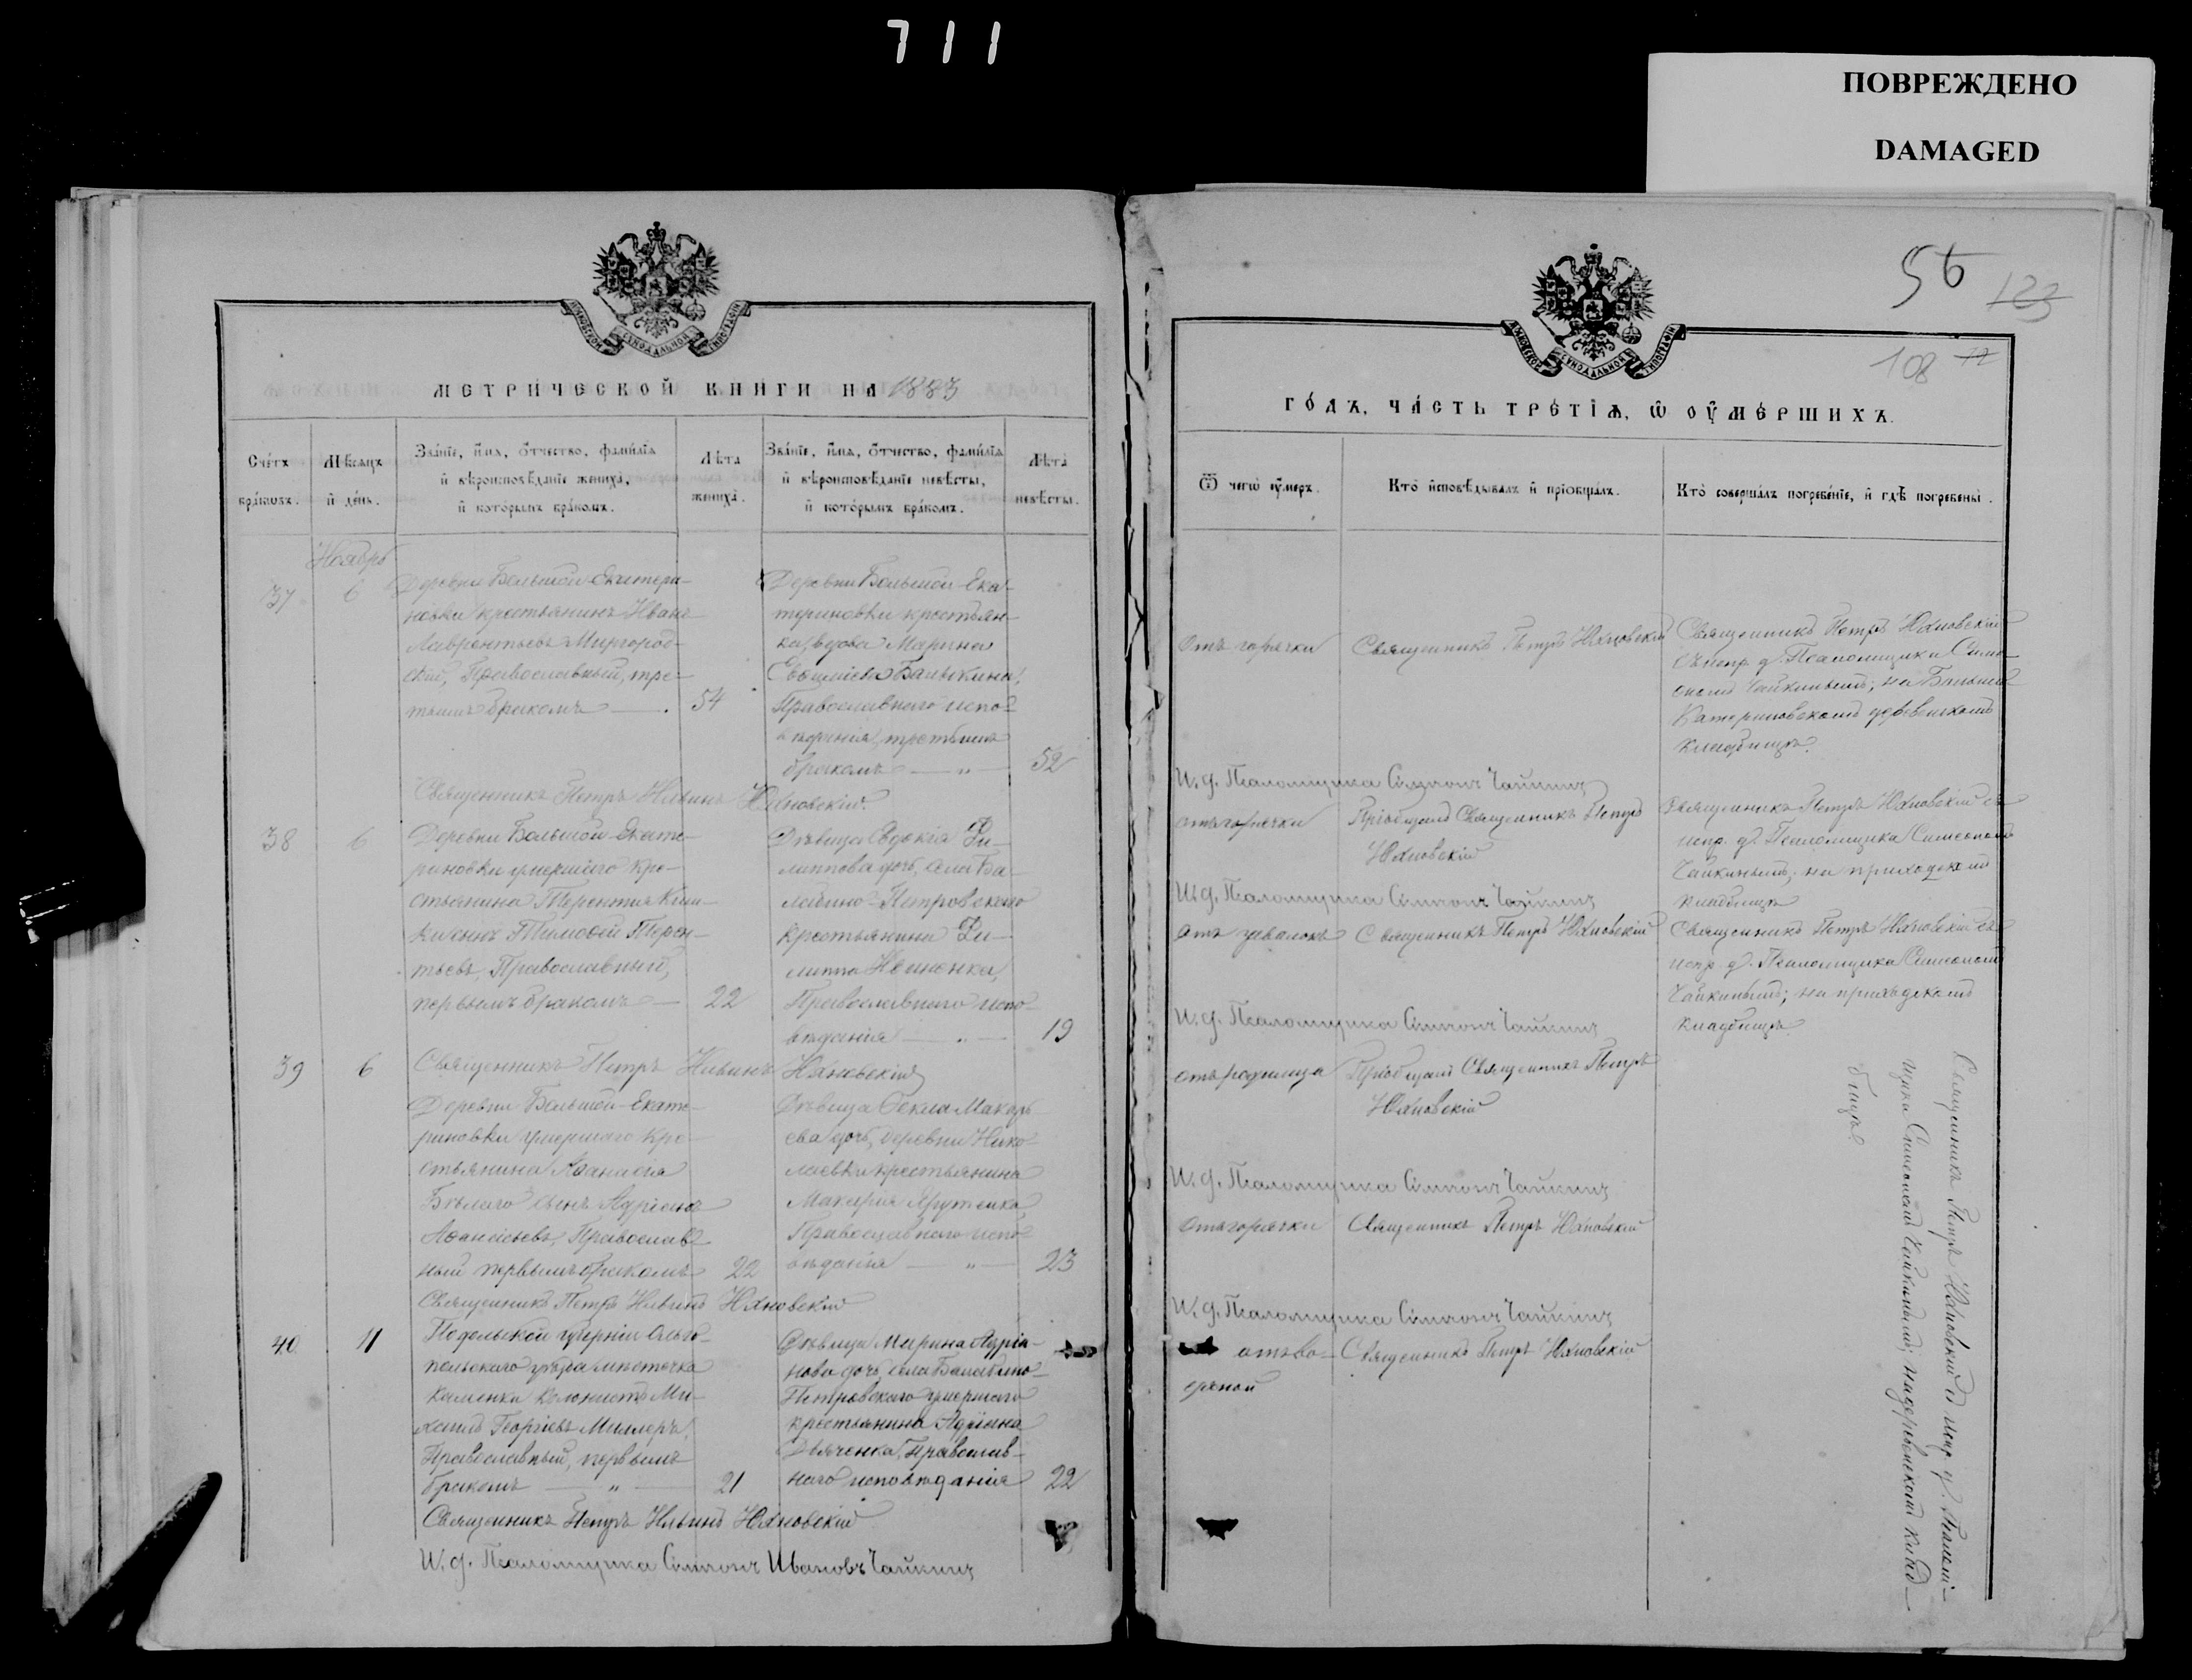 711
ПОВРЕЖДЕНО
DAMAGED
МЕТРИЧЕСКОЙ КНИГИ НА 1883
Счетъ браковъ.
Мѣсяцъ и день.
Званіе, имя, отчество, фамилія и вѣроисповѣданіе жениха, и которымъ бракомъ.
Лѣта жениха.
Званіе, имя, отчество, фамилія и вѣроисповѣданіе невѣсты, и которымъ бракомъ.
Лѣта невѣсты.
Ноябрь
37
6
Деревни Большой-Екатери-
новки крестьянинъ Иванъ
Лаврентьевъ Миргород-
скій, Православный, тре-
тьимъ бракомъ
54
Деревни Большой-Ека-
териновки крестьян-
ка, вдова Марина
Православнаго испо-
третьимъ
бракомъ
52
Священникъ Петръ Ильинъ Юхновскій
38
6
Деревни Большой-Екате-
риновки умершаго кре-
стьянина Терентія
Тимоѳей Терен-
тьевъ, Православный,
первымъ бракомъ
22
Дѣвица Евдокія Фи-
липпова дочь, села Ба-
лабино-Петровскаго
крестьянина Фи-
липпа
Православнаго испо-
вѣданія
19
Священникъ Петръ Ильинъ Юхновскій
39
6
Деревни Большой-Екате-
риновки умершаго кре-
стьянина Аѳанасія
Бѣлаго сынъ Адріанъ
Аѳанасьевъ, Православ-
ный первымъ бракомъ
22
Дѣвица Ѳекла Макарь-
ева дочь, деревни Нико-
лаевки крестьянина
Макарія
Православнаго испо-
вѣданія
23
Священникъ Петръ Ильинъ Юхновскій
40
11
Подольской губерніи Ольго-
польскаго уѣзда мѣстечка
Каменки колонистъ Ми-
хаилъ Георгіевъ Миллеръ,
Православный, первымъ
бракомъ
21
Дѣвица Марина Адріа-
нова дочь, села Балабино-
Петровскаго умершаго
крестьянина Адріана
Дьяченка, православ-
наго исповѣданія
22
Священникъ Петръ Ильинъ Юхновскій
И. д. Псаломщика Симеонъ Ивановъ Чайкинъ
56
123
108
ГОДЪ, ЧАСТЬ ТРЕТІЯ, Ѿ ОУМЕРШИХЪ.
Ѿ чегѡ оумеръ.
Кто исповѣдывалъ и пріобщалъ.
Кто совершалъ погребеніе, и гдѣ погребены.
Отъ горячки
Священникъ Петръ Юхновскій
Священникъ Петръ Юхновскій
съ испр. д. Псаломщика Симе-
ономъ Чайкинымъ; на Больше-
Катериновскомъ деревенскомъ
кладбищѣ.
И. д. Псаломщика Симеонъ Чайкинъ
Отъ горячки
Пріобщалъ Священникъ Петръ
Юхновскій
Священникъ Петръ Юхновскій съ
испр. д. Псаломщика Симеономъ
Чайкинымъ; на приходскомъ
кладбищѣ
И. д. Псаломщика Симеонъ Чайкинъ
Отъ
Священникъ Петръ Юхновскій
Священникъ Петръ Юхновскій съ
испр. д. Псаломщика Симеономъ
Чайкинымъ; на приходскомъ
кладбищѣ
И. д. Псаломщика Симеонъ Чайкинъ
отъ родимца
Пріобщалъ Священникъ Петръ
Юхновскій
И. д. Псаломщика Симеонъ Чайкинъ
Отъ горячки
Священникъ Петръ Юхновскій
И. д. Псаломщика Симеонъ Чайкинъ
Священникъ Петръ Юхновскій
Священникъ Петръ Юхновскій съ испр. д. Псалом-
щика Симеономъ Чайкинымъ; на деревенскомъ клад-
бищѣ